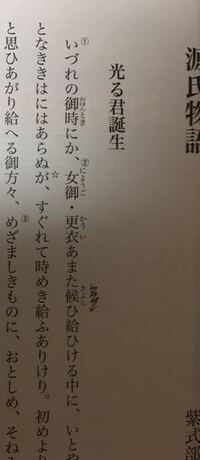 源氏物語
紫式部
光る君誕生
①いづれの御時にか、②女御・更衣あまた候ひ給ひける中に、いとや
となききはにはあらぬが、☆すぐれて時めき給ふありけり。初めよ
と思ひあがり給へる御方々、③めざましきものに、おとしめ、そねみ
おほんとき
にようご
かうい
さぶら